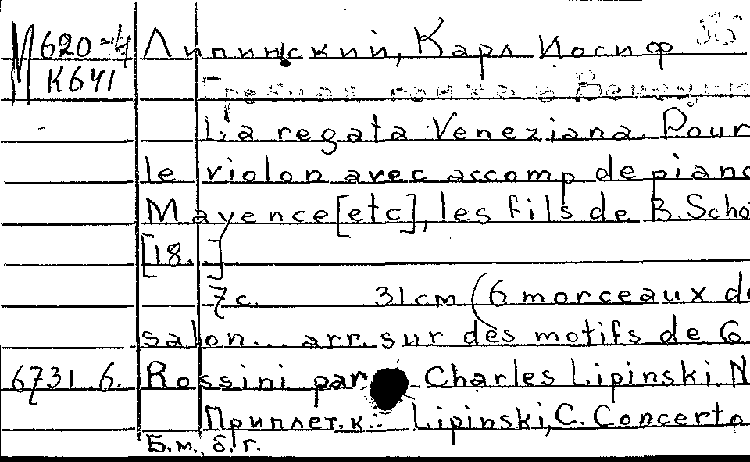 М 620-4 Липинский, Карл Иосиф
К641 Гребная гонка в
La regata Veneziana. Pour
le violon avec accomp de piano
Mayence [etc], les fils de B. Scho
[18. .]
7 c. 31 cm (6 morceaux de
salon... arr. sur des motifs de G.
6731 б. Rossini par Charles Lipinski. N
Приплет. к.: Lipinski, C. Concerto
Б.м., б/г.